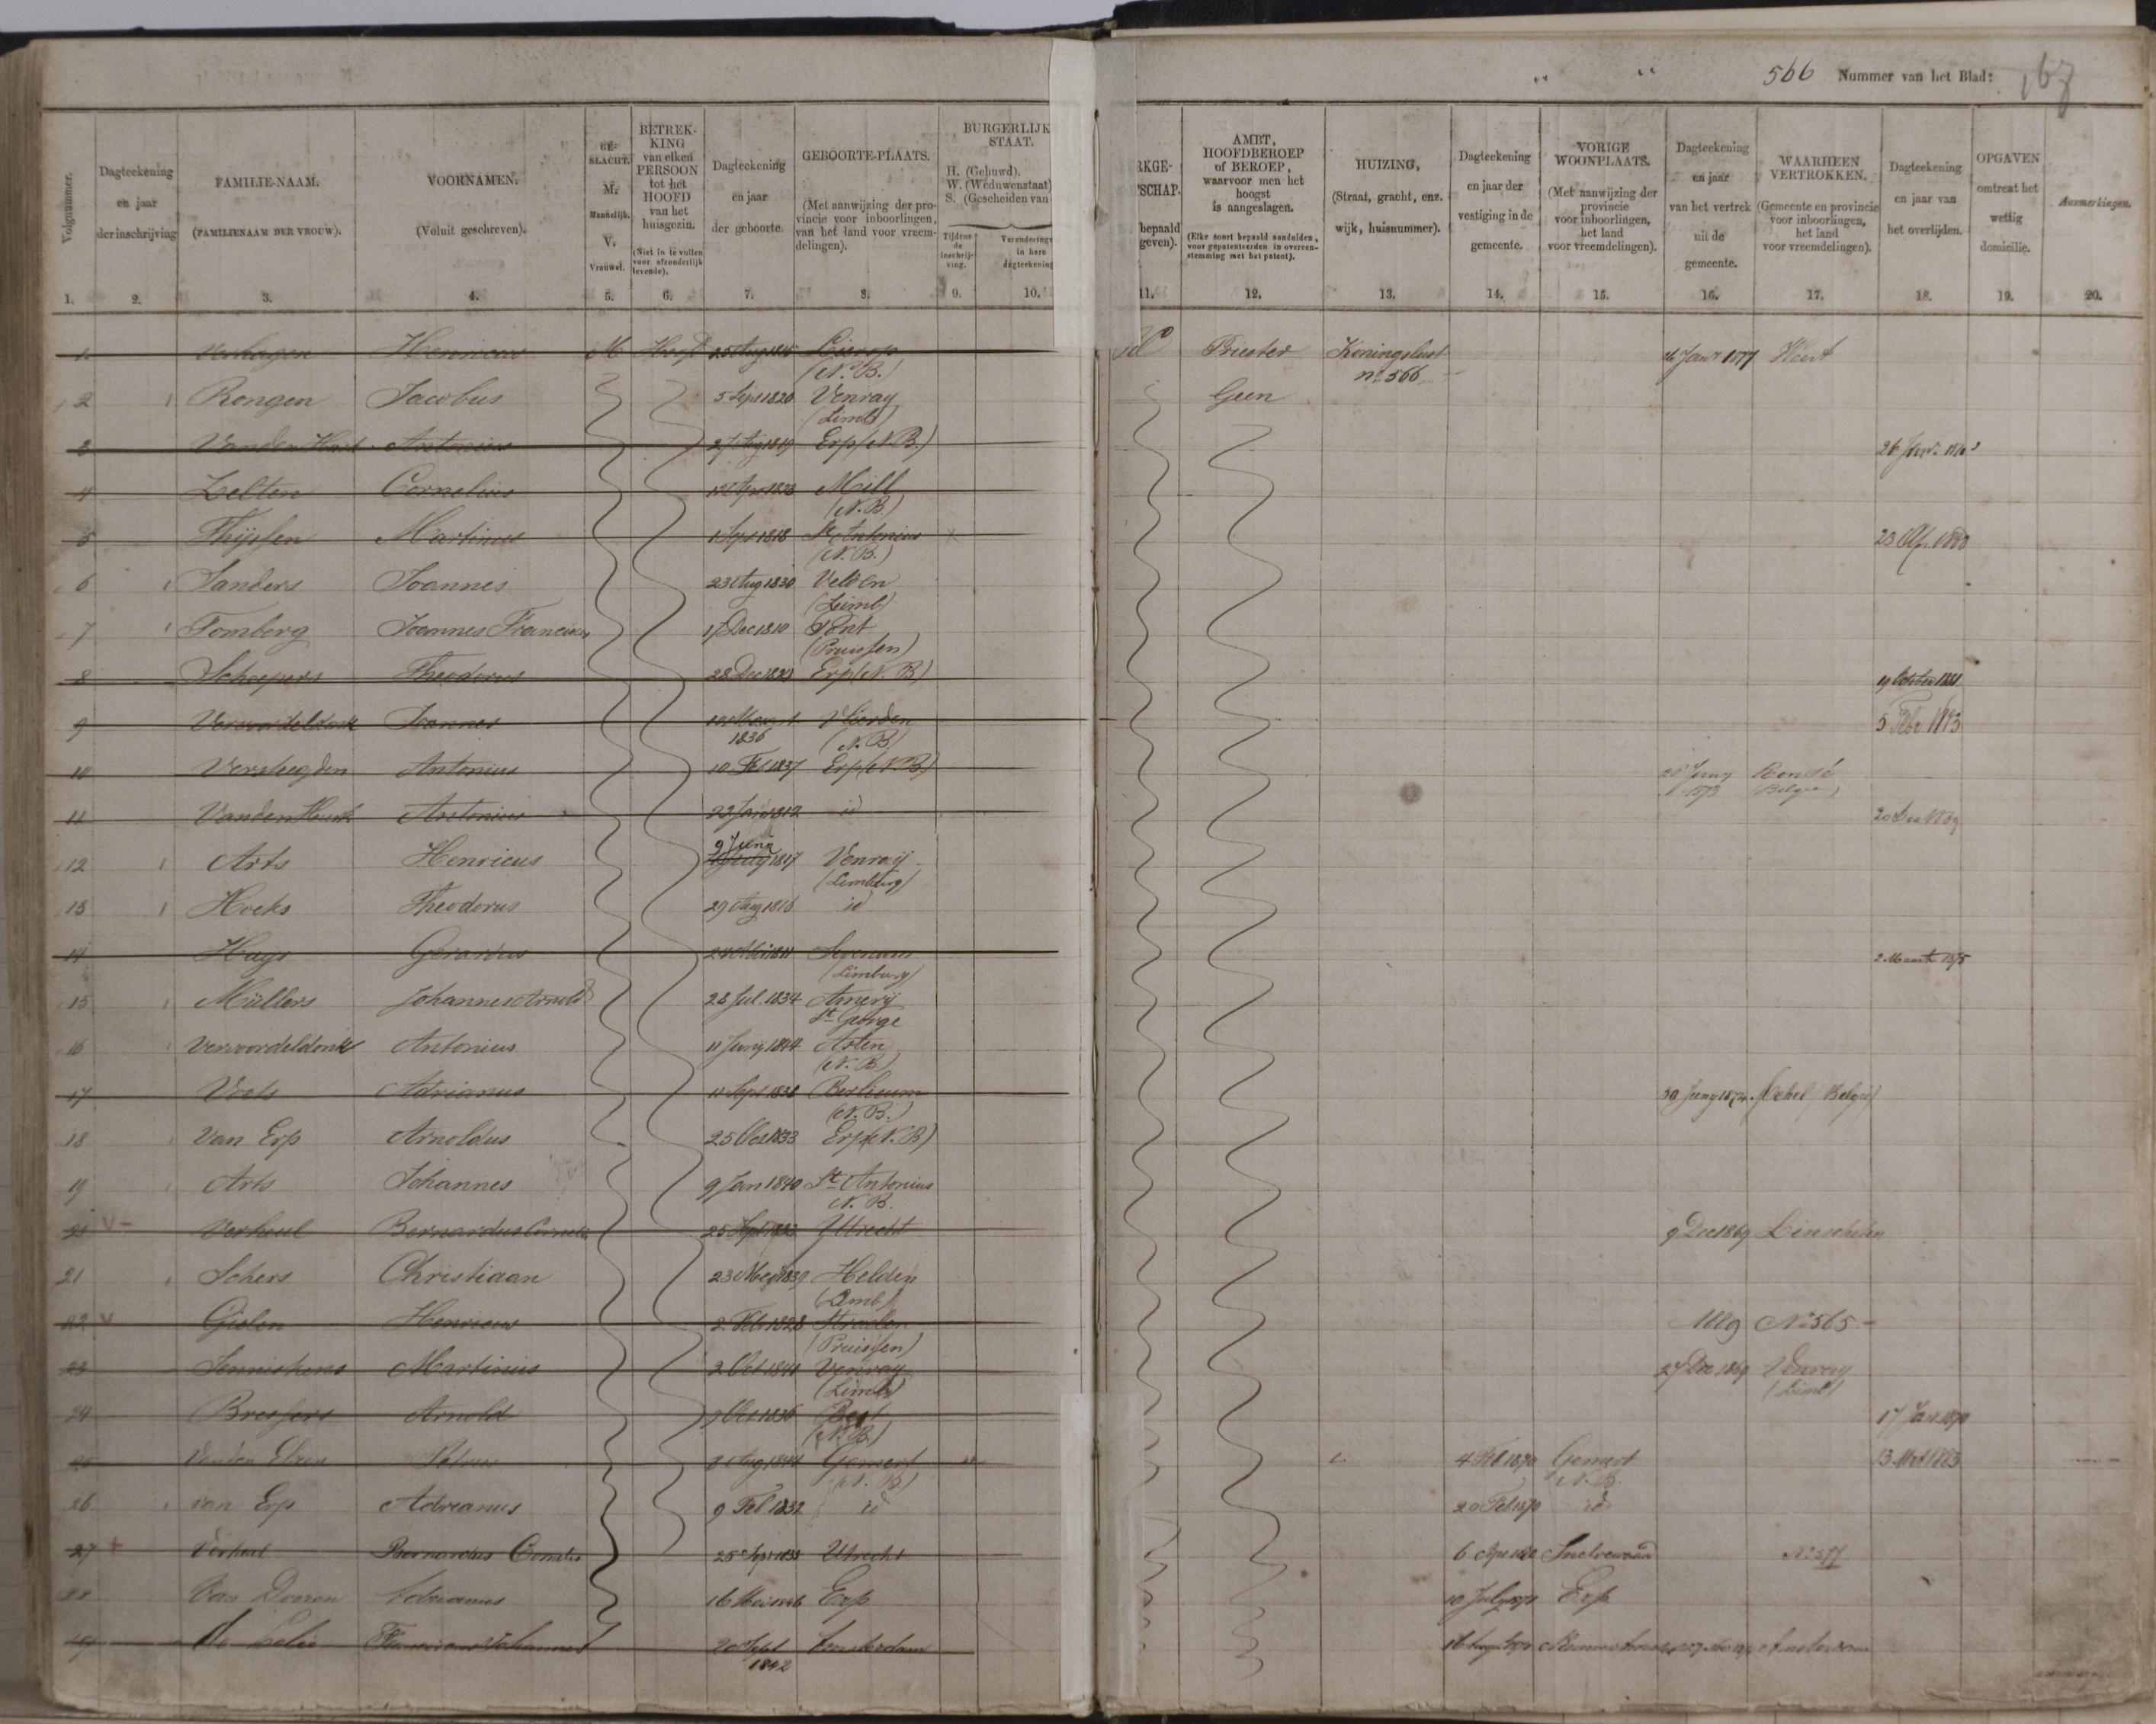 566 Nummer van het Blad: 167
Volgnummer.
Dagteekening en jaar der inschrijving
FAMILIE-NAAM. (FAMILIENAAM DER VROUW).
VOORNAMEN. (Voluit geschreven).
GE-SLACHT. M. Mannelijk. V. Vrouwel.
BETREK-KING van elken PERSOON tot het HOOFD van het huisgezin. (Niet in te vullen voor afzonderlijk levende).
Dagteekening en jaar der geboorte.
GEBOORTE-PLAATS. (Met aanwijzing der provincie voor inboorlingen, van het land voor vreemdelingen).
BURGERLIJK STAAT. H. (Gehuwd). W. (Weduwenstaat) S. (Gescheiden van
Tijdens de inschrijving.
Veranderinge in here dagteekening
RKGE-TSCHAP. bepaald geven).
AMBT, HOOFDBEROEP of BEROEP, waarvoor men het hoogst is aangeslagen. (Elke soort bepaald aanduiden, voor gepatenteerden in overeenstemming met het patent).
HUIZING, (Straat, gracht, enz. wijk, huisnummer).
Dagteekening en jaar der vestiging in de gemeente.
VORIGE WOONPLAATS. (Met aanwijzing der provincie voor inboorlingen, het land voor vreemdelingen).
Dagteekening en jaar van het vertrek uit de gemeente.
WAARHEEN VERTROKKEN. (Gemeente en provincie voor inboorlingen, het land voor vreemdelingen).
Dagteekening en jaar van het overlijden.
OPGAVEN omtrent het wettig domicilie.
Aanmerkingen.
1. 2. 3. 4. 5. 6. 7. 8. 9. 10. 11. 12. 13. 14. 15. 16. 17. 18. 19. 20.
1 Verhagen Henricus M Hoofd Lierop (N. B.) Priester Koningslust no. 566 Weert
2 Rongen Jacobus 5 Sept 1820 Venray (Limb) Geen
3 Van den Hurk Antonius 27 Aug 1819 Erp (N. B.)
4 Zelten Cornelius Mill (N. B.)
5 Thijssen Martinus 1 Sept 1818 St Antonius (N. B.)
6 Sanders Joannes 23 Aug 1830 Velden (Limb)
7 Tomberg Joannes Franciscus 17 Dec 1810 Pont (Pruissen)
8 Schepers Theodorus Erp (N. B) 19 October 1881
9 Vervoordeldonk Joannes 1836 Vlierden (N. B) 5 Febr
10 Versteegden Antonius 10 Feb 1837 Erp (N. B) (Belgie)
11 Van den Hurk Antonius id
12 Arts Henricus 9 Junij 1817 Venraij (Limburg)
13 Hoeks Theodorus 29 Aug 1816 id
14 Hays Gerardus Sevenum (Limburg) 2 Maart 1875
15 Müllers Johannes Arnold 28 Jul. 1834 Amerij St George
16 Vervoordeldonk Antonius 11 Junij 1844 Asten (N. B.)
17 Adrianus Berlicum (N. B.) 30 Juny 1872 Achel (Belgie)
18 Van Erp Arnoldus 25 Oct 1833 Erp (N. B)
19 Arts Johannes 9 Jan 1840 St Antonius N. B.
20 Verheul Bernardus Cornelis 25 Sept 1833 Utrecht 9 Dec 1869 Linschoten
21 Schers Christiaan Helden (Limb)
22 Gielen Henricus 2 Feb 1828 Straelen (Pruissen) No 565
23 Jenniskens Martinus 2 Oct 1840 Venray (Limb) 27 Dec 1869 Venray (Limb)
24 Bressers Arnold Oct 1836 Best (N. B.) 17 Jan 1870
25 Van den Elzen Petrus 8 Aug 1844 Gemert (N. B) 4 Feb 1870 Gemert N. B. 13 1883
26 van Erp Adrianus 9 Feb 1832 id 20 Feb 1870 id
27 Verheul Bernardus Cornelis 25 Sept 1833 Utrecht 6 Snelrewaard No 577
28 Van Dooren Adrianus 16 Mei 1846 Erp 10 July Erp
29 de Franciscus Johannes 20 Sept 1842 Amsterdam Amsterdam